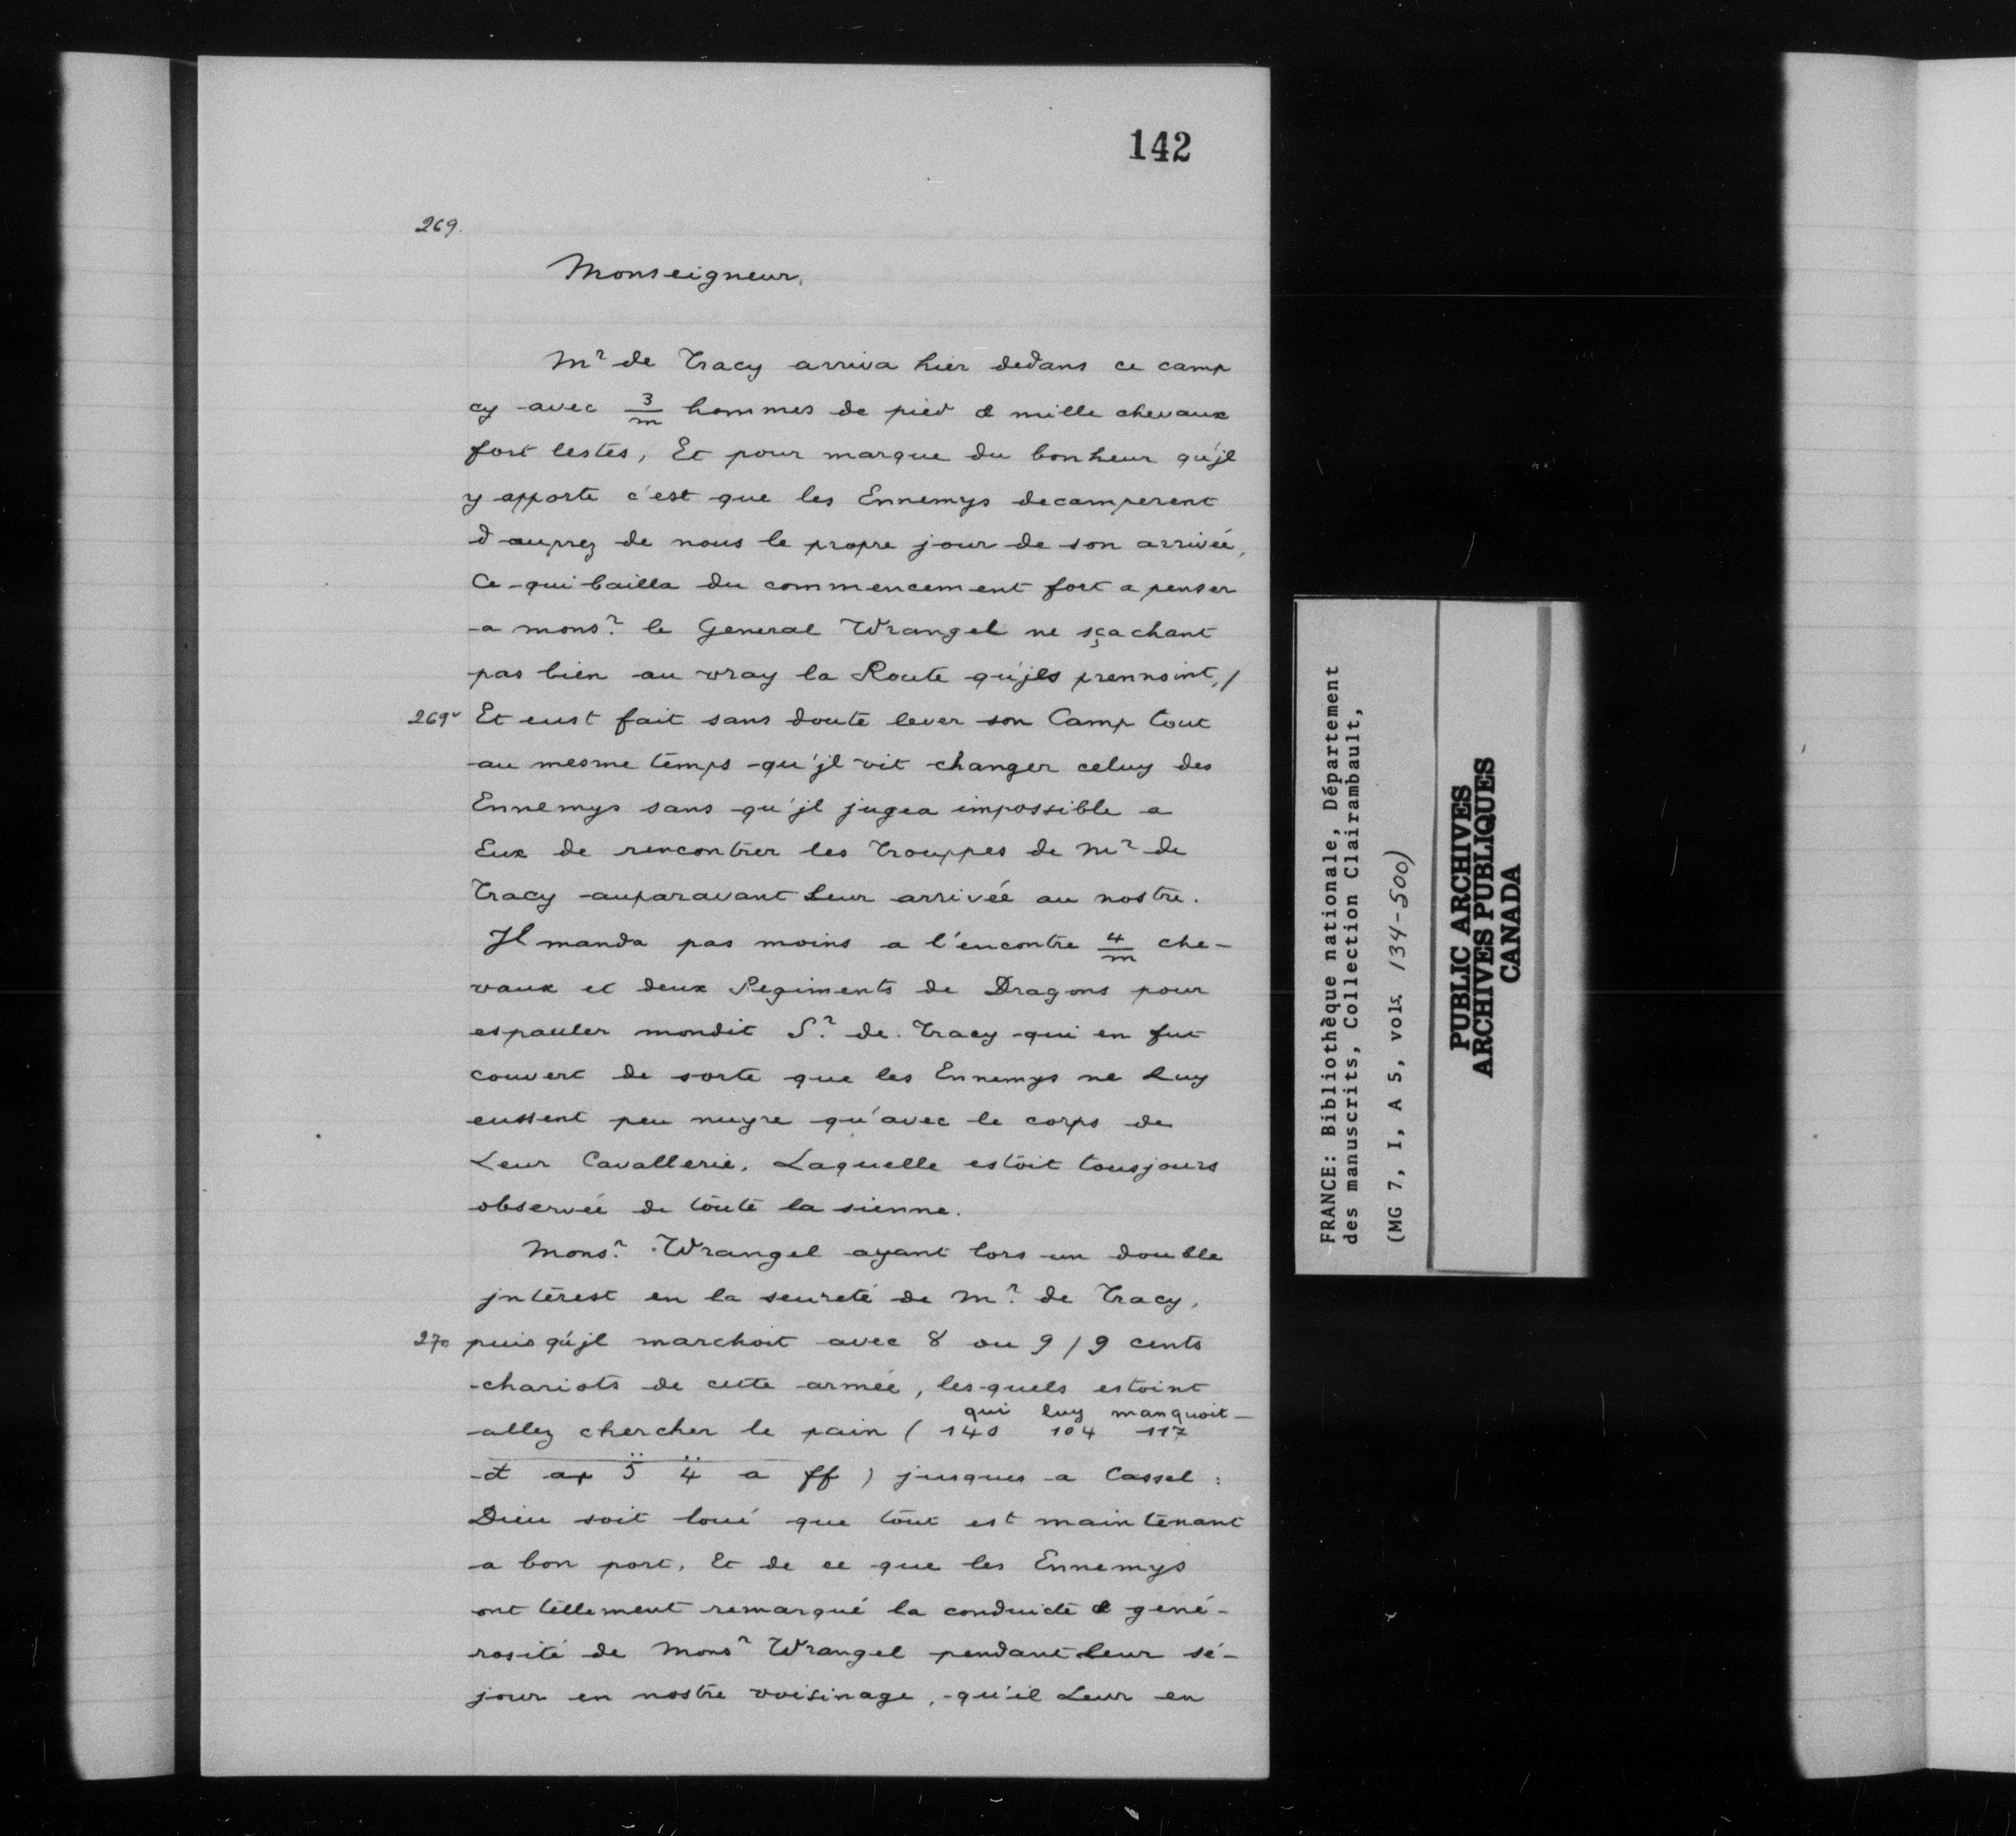 142
269.
Monseigneur,
Mr de Tracy arriva hier dedans ce camp
cy avec 3/m hommes de pied & mille chevaux
fort lestes, Et pour marque du bonheur qu'jl
y apporte c'est que les Ennemys decamperent
d'auprez de nous le propre jour de son arrivée,
Ce qui bailla du commencement fort a penser
a monsr le General Wrangel ne sçachant
pas bien au vray la Route qu'jls prennoint,/
269v Et eust fait sans doute lever son Camp tout
au mesme temps qu'jl vit changer celuy des
Ennemys sans qu'jl jugea impossible a
Eux de rencontrer les trouppes de Mr de
Tracy auparavant Leur arrivée au nostre.
Jl manda pas moins a l'encontre 4/m che-
vaux et deux Regiments de Dragons pour
espauler mondit Sr de Tracy qui en fut
couvert de sorte que les Ennemys ne Luy
eussent peu nuyre qu'avec le corps de
Leur Cavallerie, Laquelle estoit tousjours
observée de toute la sienne.
Monsr Wrangel ayant lors un double
jnterest en la seureté de Mr de Tracy,
270 puis qu'jl marchoit avec 8 ou 9 / 9 cents
chariots de cette armée, lesquels estoint
qui luy manquoit
allez chercher le pain ( 140 104 117
d ap 5̈ 4̈ a ff ) jusques a Cassel :
Dieu soit loué que tout est maintenant
a bon port, Et de ce que les Ennemys
ont tellement remarqué la conduicte & gené-
rosité de Monsr Wrangel pendant Leur sé-
jour en nostre voisinage, qu'il Leur en
FRANCE: Bibliothèque nationale, Département
des manuscrits, Collection Clairambault,
(MG 7, I, A 5, vols. 134-500)
PUBLIC ARCHIVES
ARCHIVES PUBLIQUES
CANADA